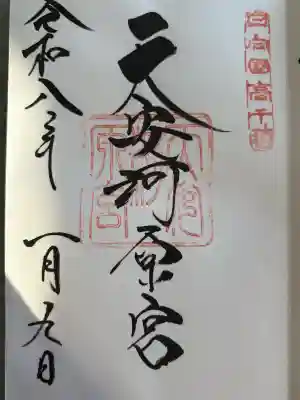 日向國高千穂
天安河原宮
令和八年
一月九日